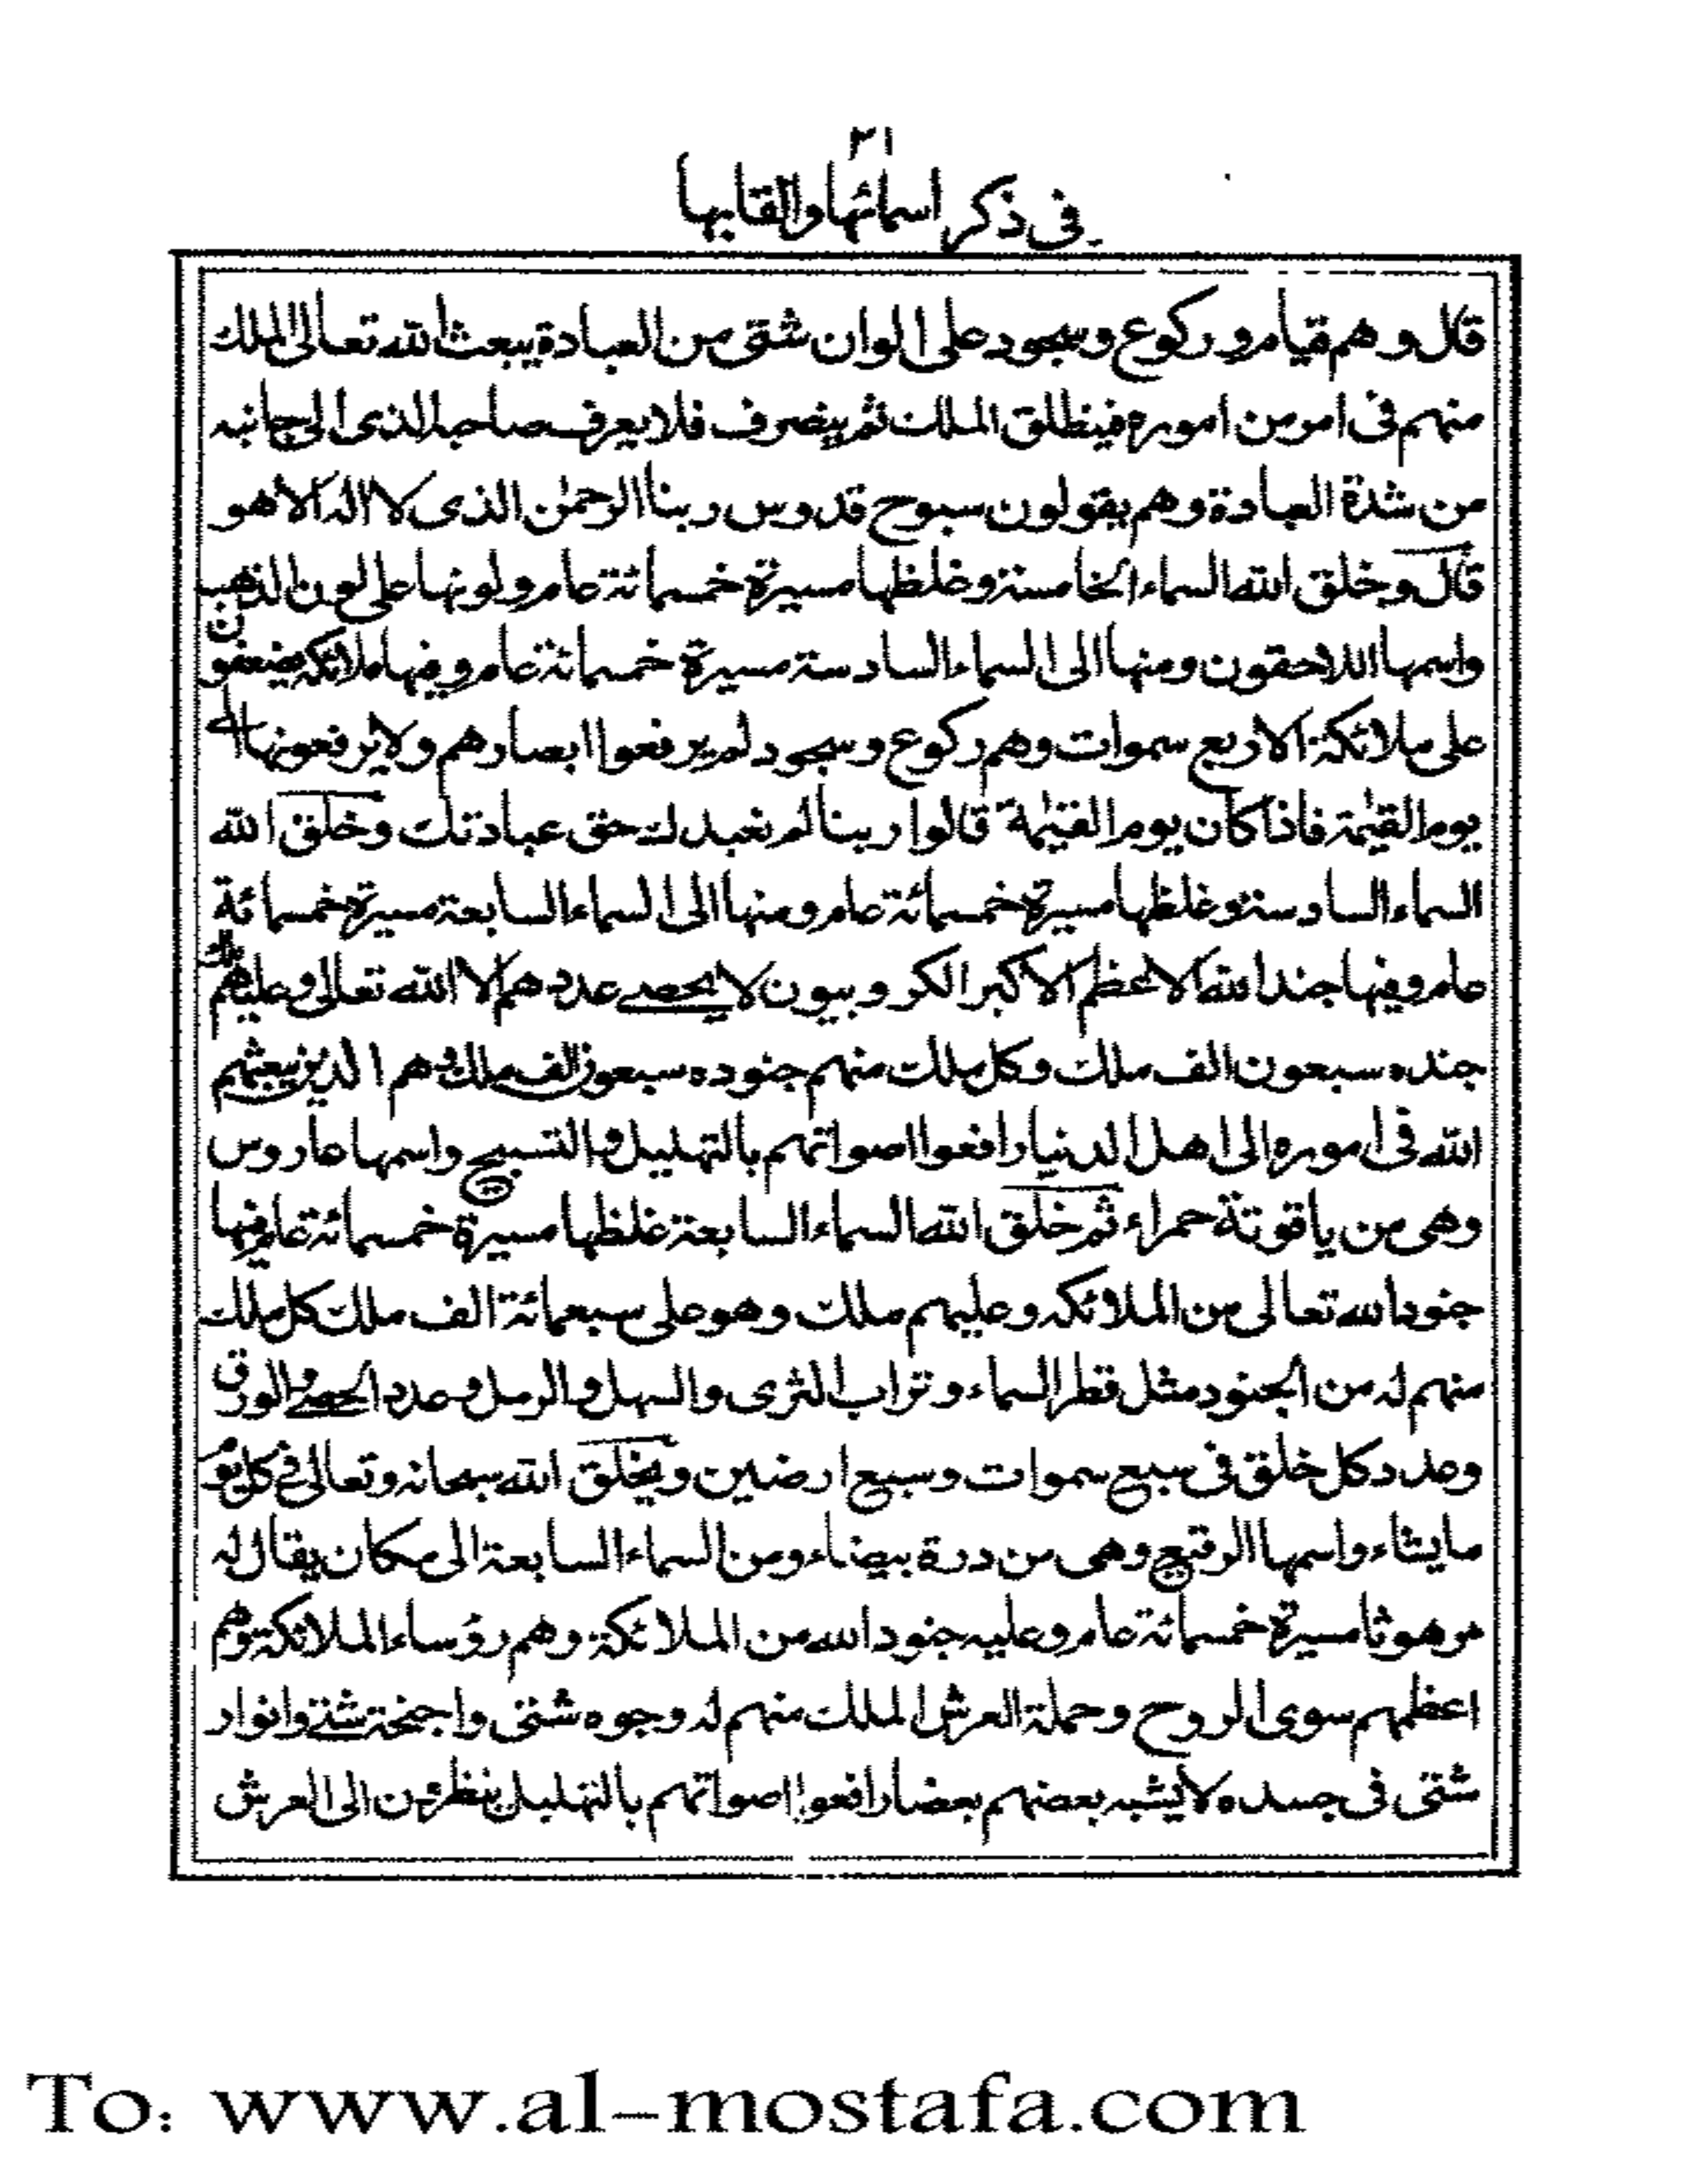 ٢١
في ذكر اسمائها والقابها
قال وهم قيام وركوع وسجود على الوان شتى من العبادة يبعث الله تعالى الملك
منهم فى امر من اموره فينطلق الملك ثم ينصرف فلا يعرف صاحبه الذى الى جانبه
من شدة العبادة وهم يقولون سبوح قدوس ربنا الرحمٰن الذى لا اله الا هو
قال وخلق الله السماء الخامسة وغلظها مسيرة خمسمائة عام ولونها على لون الذهب
واسمها اللاحقون ومنها الى السماء السادسة مسيرة خمسمائة عام وفيها ملائكه يضعفون
على ملائكة الاربع سموات وهم ركوع وسجود لم يرفعوا ابصارهم ولا يرفعونها الى
يوم القيٰمة فاذا كان يوم القيٰمة قالوا ربنا لم نعبدك حق عبادتك وخلق الله
السماء السادسة وغلظها مسيرة خمسمائة عام ومنها الى السماء السابعة مسيرة خمسمائة
عام وفيها جند الله الاعظم الاكبر الكروبيون لا يحصى عددهم الا الله تعالى وعليهم ملك
جنده سبعون الف ملك وكل ملك منهم جنوده سبعون الف ملك وهم الذين يبعثهم
الله فى اموره الى اهل الدنيا رافعوا اصواتهم بالتهليل والتسبيح واسمها عاروس
وهى من ياقوتة حمراء ثم خلق الله السماء السابعة غلظها مسيرة خمسمائة عام فيها
جنود الله تعالى من الملائكه وعليهم ملك وهو على سبعمائة الف ملك كل ملك
منهم له من الجنود مثل قطر السماء وتراب الثرى والسهل والرمل وعدد الحصى والورق
وعدد كل خلق فى سبع سموات وسبع ارضين ويخلق الله سبحانه وتعالى فى كل يوم
ما يشاء واسمها الرقيع وهى من درة بيضاء ومن السماء السابعة الى مكان يقال له
مرهوثا مسيرة خمسمائة عام وعليه جنود الله من الملائكة وهم رؤساء الملائكة وهم
اعظمهم سوى الروح وحملة العرش الملك منهم له وجوه شتى واجنحة شتى وانوار
شتى فى جسده لا يشبه بعضهم بعضا رافعوا اصواتهم بالتهليل ينظرون الى العرش
To: www.al-mostafa.com